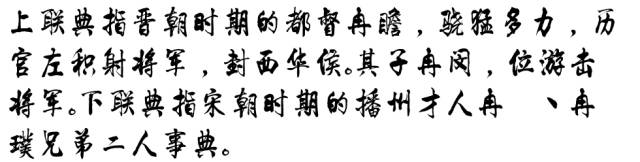 上联典指晋朝时期的都督冉瞻，骁猛多力，历
官左积射将军，封西华侯。其子冉闵，位游击
将军。下联典指宋朝时期的播州才人冉　、冉
璞兄弟二人事典。